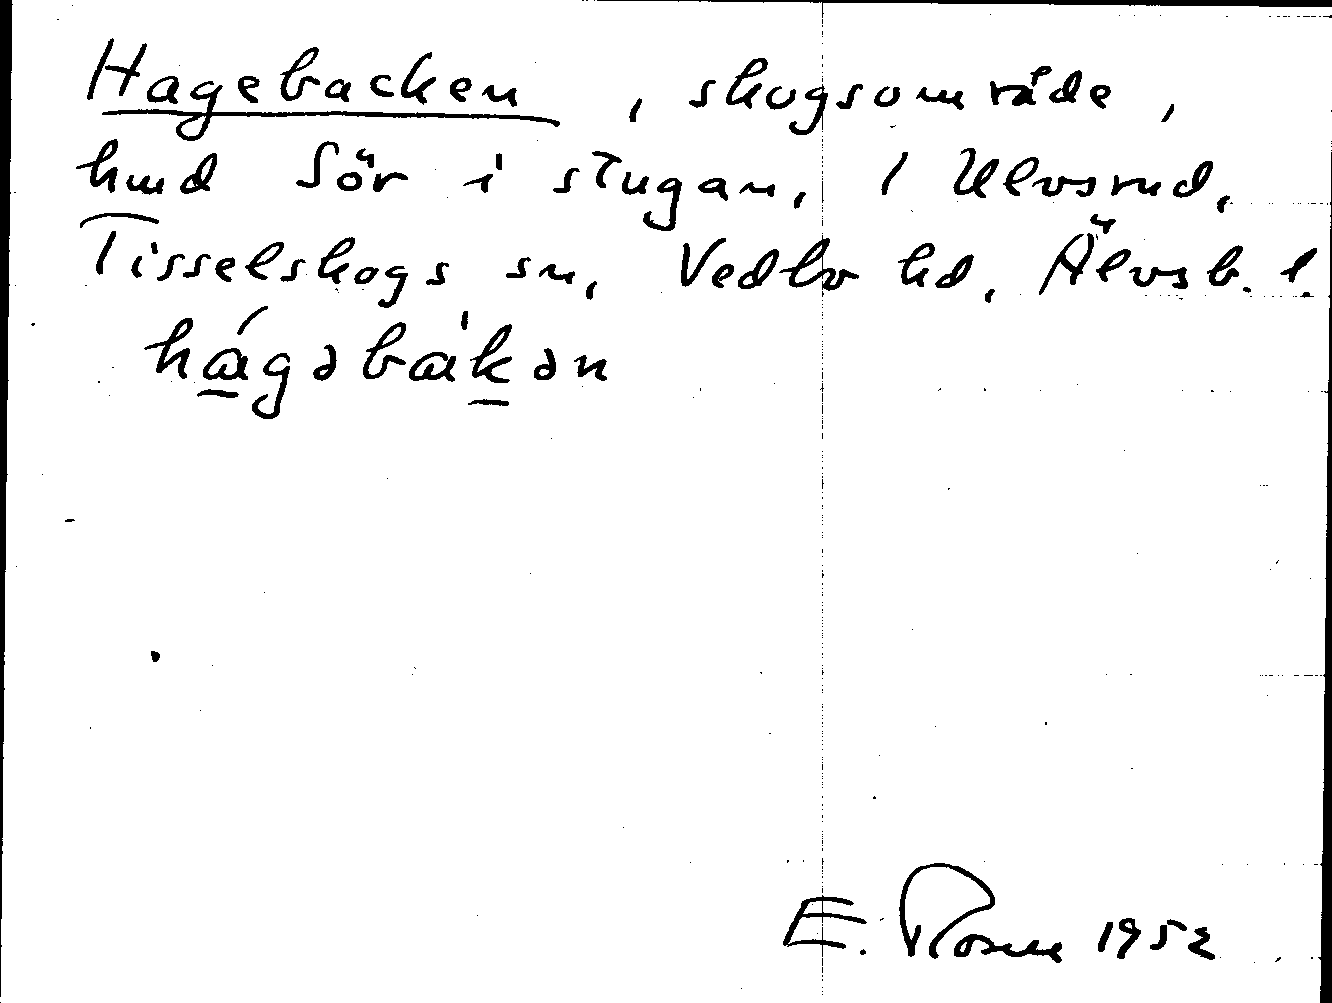 Hagebacken, skogsområde,
hmd Sör i stugan, 1 Ulvsrud,
Tisselskogs sn, Vedbo hd, Älvsb. l.
hágəbàkən
E. Rosell 1952